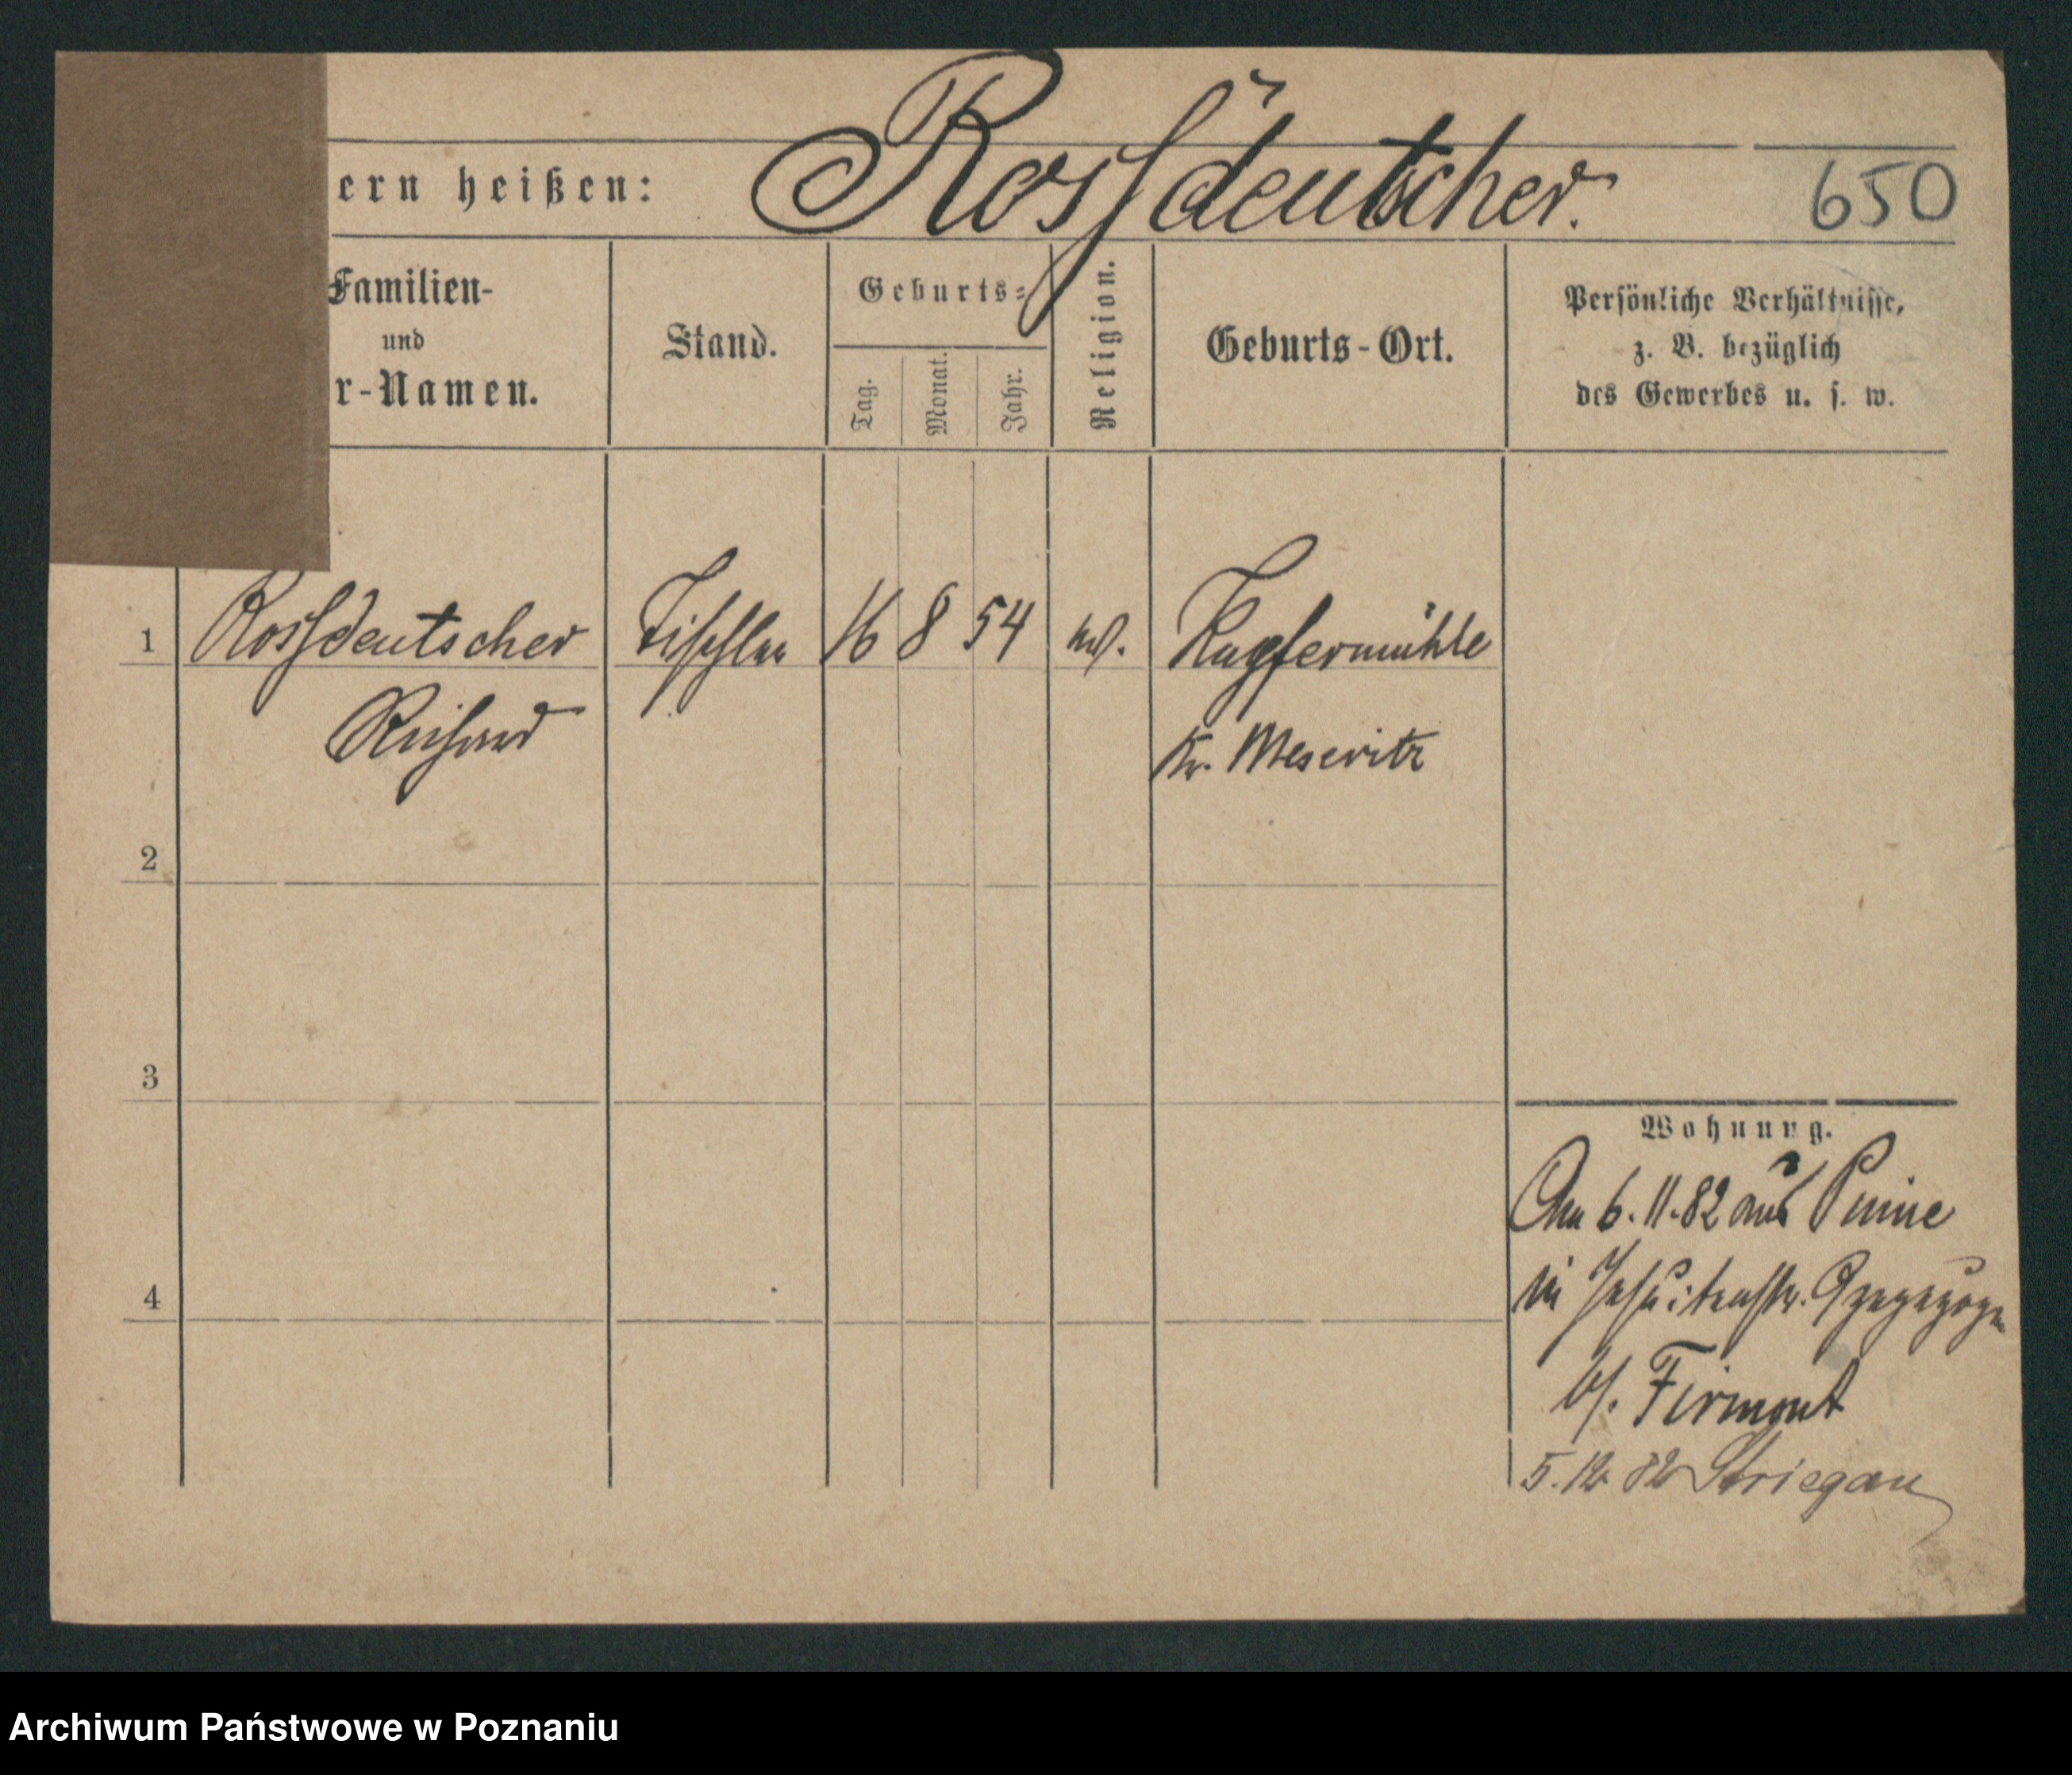 ern heißen: Rossdeutscher. 650
Familien-
und
r-Namen.
Stand.
Geburts-
Tag.
Monat.
Jahr.
Religion.
Geburts-Ort.
Persönliche Verhältnisse,
z. B. bezüglich
des Gewerbes u. s. w.
1 Rossdeutscher Tischler 16 8 54 Kupfermühle
Richard Kr. Meseritz
2
3
Wohnung.
Am 6.11.82 aus Pinne
in Jesuitenstr. 9 zugezogen
b/. Firmont
4
5.12.82 Striegau
Archiwum Państwowe w Poznaniu